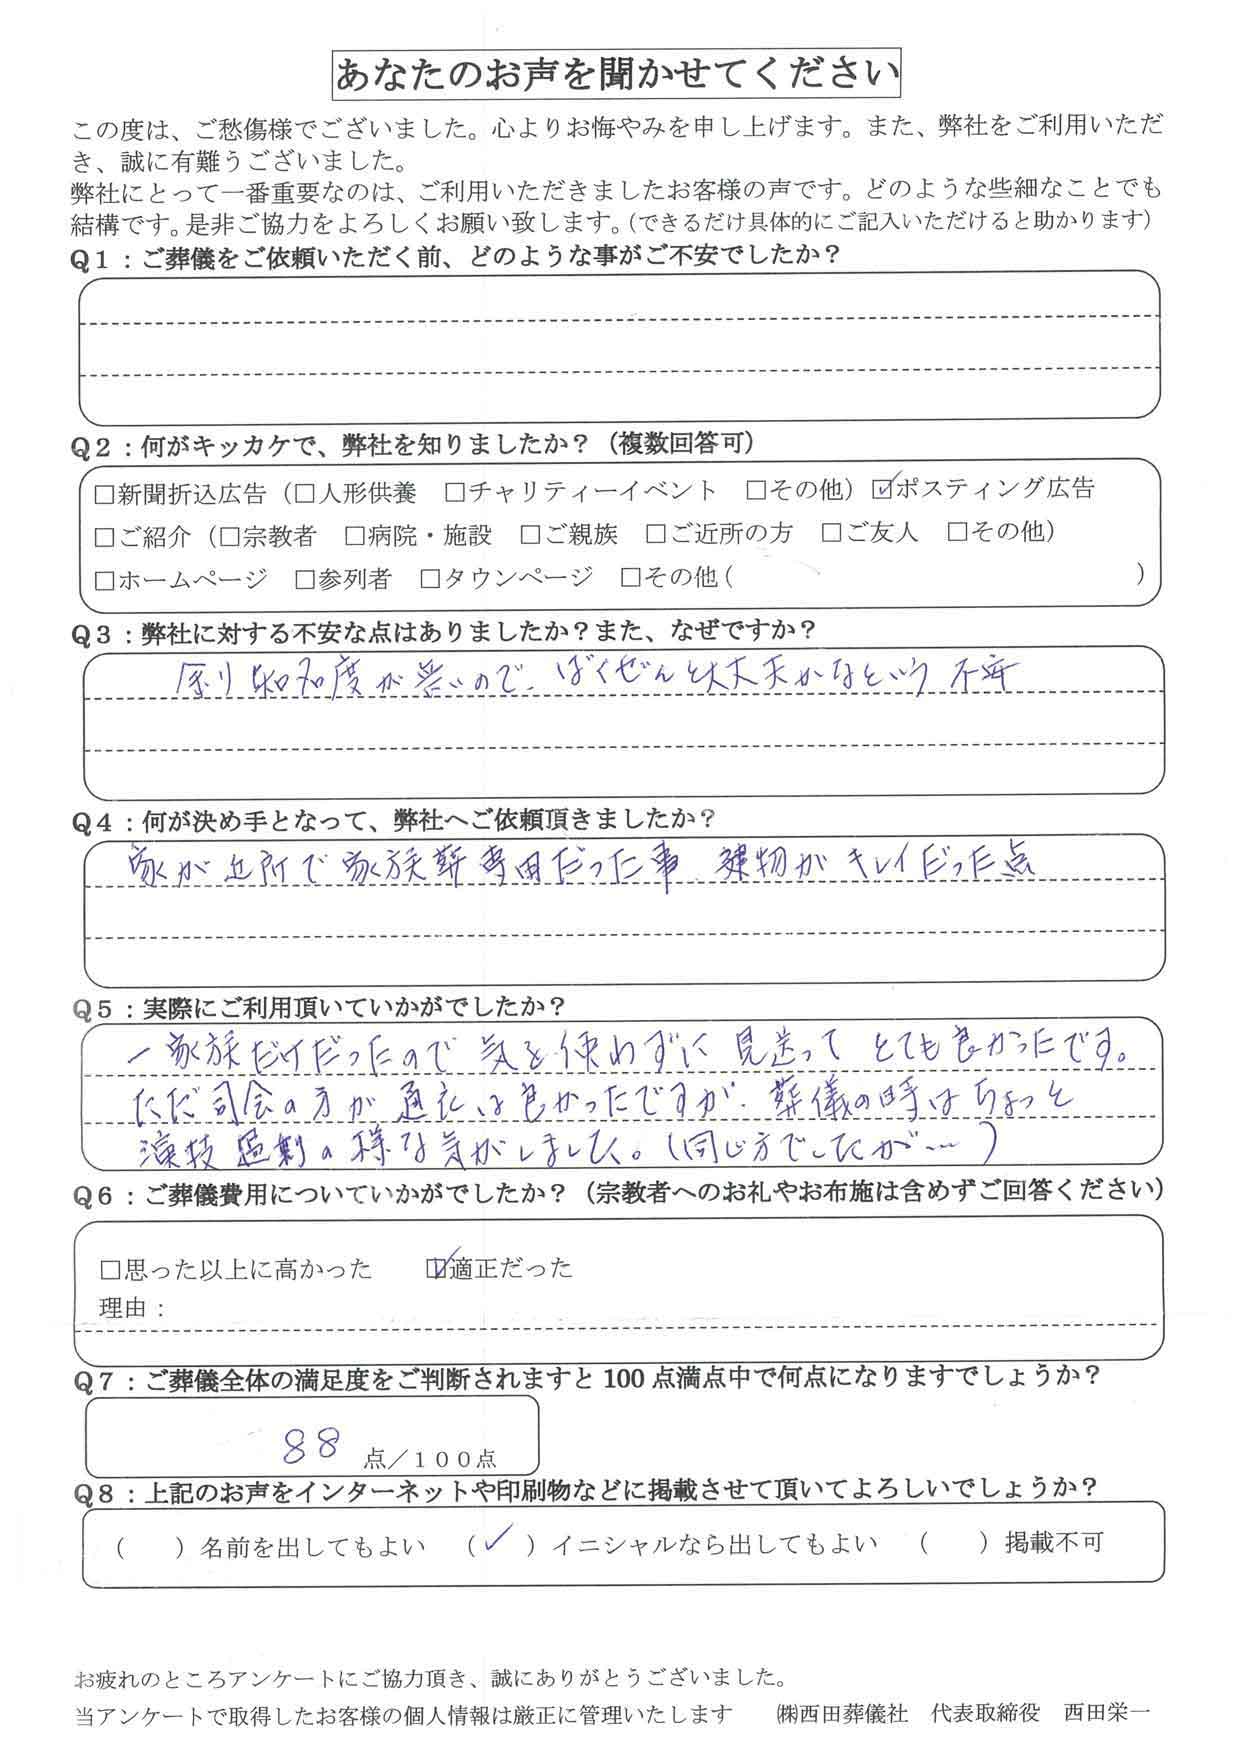 あなたのお声を聞かせてください
この度は、ご愁傷様でございました。心よりお悔やみを申し上げます。また、弊社をご利用いただ
き、誠に有難うございました。
弊社にとって一番重要なのは、ご利用いただきましたお客様の声です。どのような些細なことでも
結構です。是非ご協力をよろしくお願い致します。（できるだけ具体的にご記入いただけると助かります）
Q1：ご葬儀をご依頼いただく前、どのような事がご不安でしたか？
Q2：何がキッカケで、弊社を知りましたか？（複数回答可）
□新聞折込広告（□人形供養 □チャリティーイベント □その他）☑ポスティング広告
□ご紹介（□宗教者 □病院・施設 □ご親族 □ご近所の方 □ご友人 □その他）
□ホームページ □参列者 □タウンページ □その他（ ）
Q3：弊社に対する不安な点はありましたか？また、なぜですか？
知名度が ので、ばくぜんと大丈夫かなという 不安
Q4：何が決め手となって、弊社へご依頼頂きましたか？
家が近所で家族葬専用だった事、建物がキレイだった点
Q5：実際にご利用頂いていかがでしたか？
一家族だけだったので 気を使わずに 見送って とても良かったです。
ただ司会の方が 通夜は良かったですが、葬儀の時はちょっと
演技過剰の様な気がしました。（同じ方でしたが…）
Q6：ご葬儀費用についていかがでしたか？（宗教者へのお礼やお布施は含めずご回答ください）
□思った以上に高かった ☑適正だった
理由：
Q7：ご葬儀全体の満足度をご判断されますと100点満点中で何点になりますでしょうか？
88 点／１００点
Q8：上記のお声をインターネットや印刷物などに掲載させて頂いてよろしいでしょうか？
（ ）名前を出してもよい （✓）イニシャルなら出してもよい （ ）掲載不可
お疲れのところアンケートにご協力頂き、誠にありがとうございました。
当アンケートで取得したお客様の個人情報は厳正に管理いたします ㈱西田葬儀社 代表取締役 西田栄一